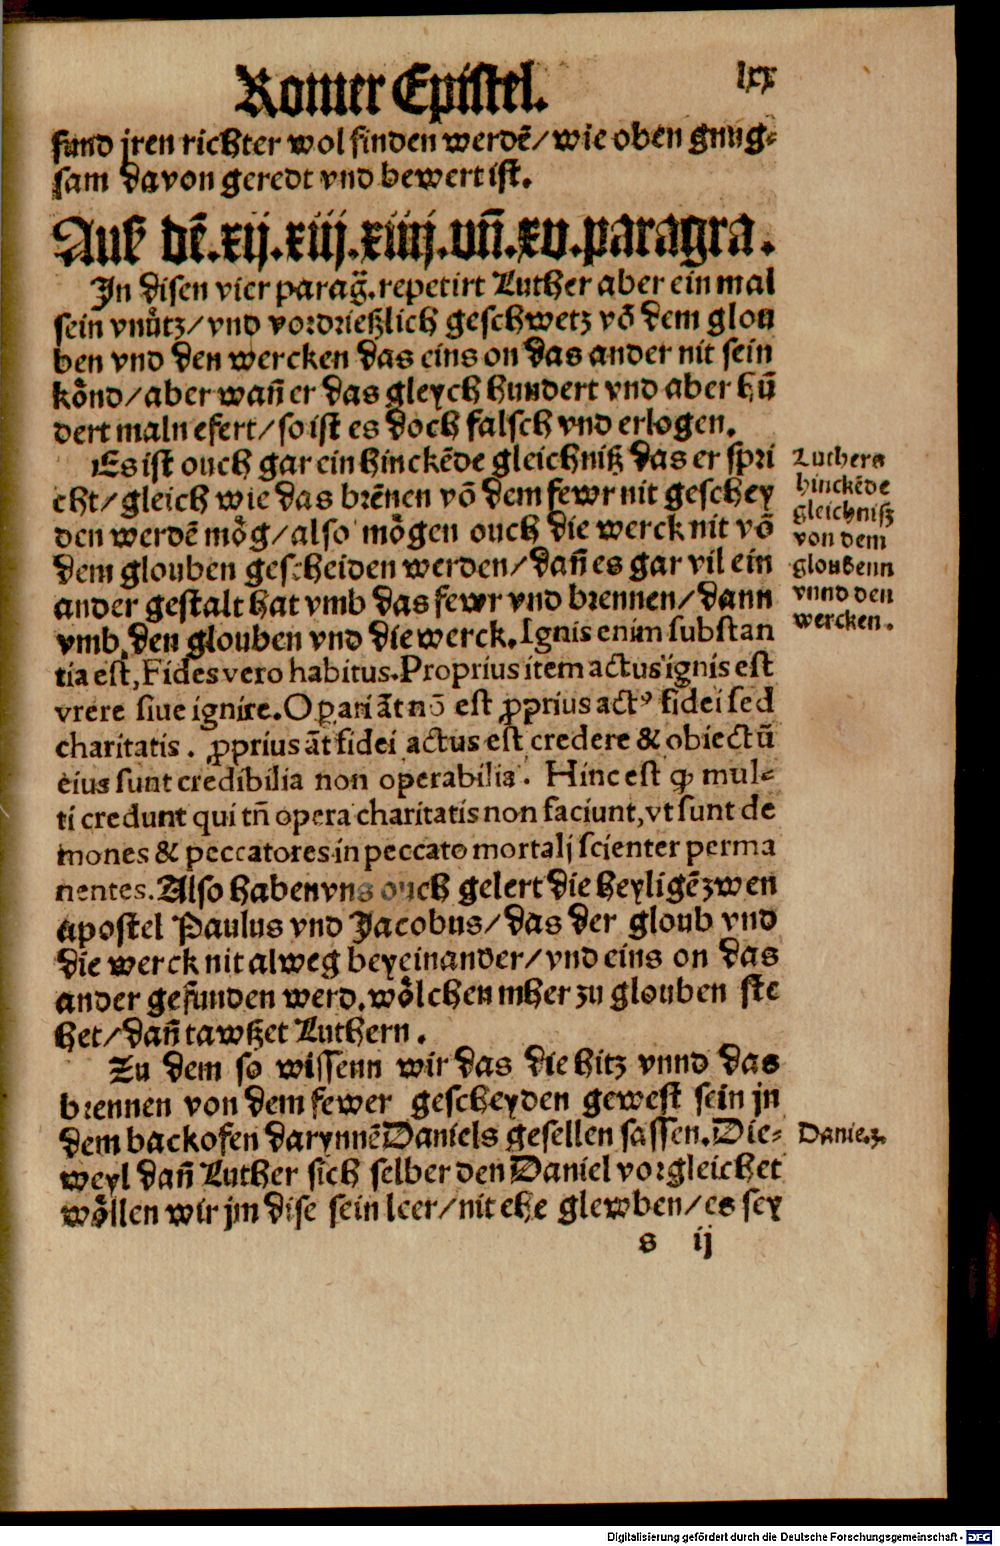 Romer Epistel.
lxx
sund jren richter wol finden werdē/wie oben gnug⸗
sam davon geredt vnd bewert ist.
Auß dē.xij.xiij.xiiij.vñ.xv.paragra.
In disen vier parag̃.repetirt Luther aber ein mal
sein vnůtz/vnd vordrießlich geschwetz võ dem glou
ben vnd den wercken das eins on das ander nit sein
kǒnd/aber wañ er das gleych hundert vnd aber hũ
dert maln efert/so ist es doch falsch vnd erlogen.
Es ist ouch gar ein hinckēde gleichnüß das er spri
cht/gleich wie das brēnen võ dem fewr nit geschey
den werdē mǒg/also mǒgen ouch die werck nit võ
dem glouben gescheiden werden/dañ es gar vil ein
ander gestalt hat vmb das fewr vnd brennen/dann
vmb den glouben vnd die werck.Ignis enim substan
tia est,Fides vero habitus.Proprius item actus ignis est
vrere siue ignire.Opari āt nō est ꝓprius actꝰ fidei sed
charitatis. ꝓprius āt fidei actus est credere & obiectū
eius sunt credibilia non operabilia. Hinc est ꝙ mul⸗
ti credunt qui tñ opera charitatis non faciunt,vt sunt de
mones & peccatores in peccato mortalj scienter perma
nentes.Also haben vns ouch gelert die heyligē zwen
apostel Paulus vnd Jacobus/das der gloub vnd
die werck nit alweg beyeinander/vnd eins on das
ander gefunden werd.wǒlchen mher zu glouben ste
het/dañ tawßet Luthern.
Zu dem so wissenn wir das die hitz vnnd das
brennen von dem fewer gescheyden gewest sein jn
dem backofen darynnē Daniels gesellen sassen.Die⸗
weyl dañ Luther sich selber den Daniel vorgleichet
wǒllen wir jm dise sein leer/nit ehe glewben/es sey
s ij
Luthers
hinckēde
gleichniß
von dem
gloubenn
vnnd den
wercken.
Danie.3.
Digitalisierung gefördert durch die Deutsche Forschungsgemeinschaft - DFG